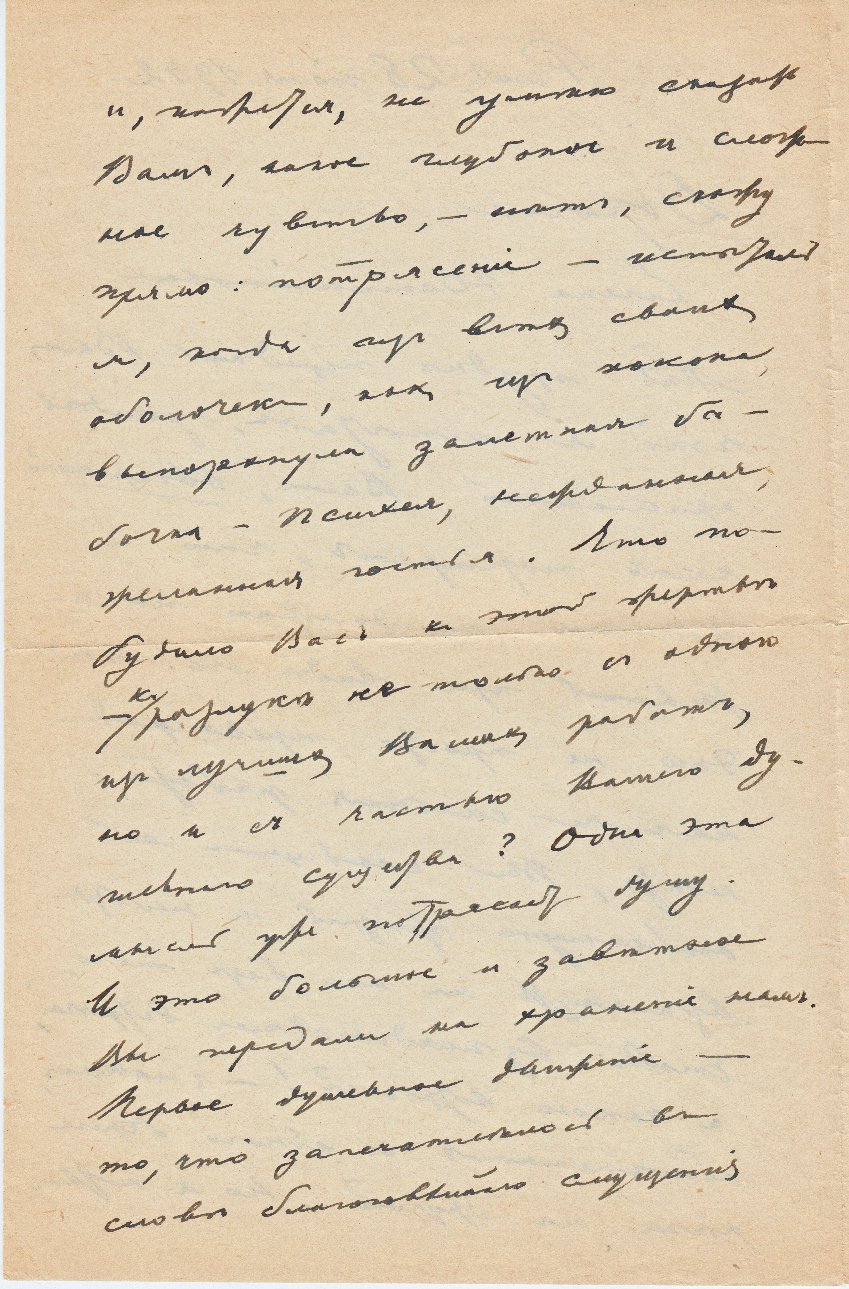 и, кажется, не умѣю сказать
Вамъ, какое глубокое и слож-
ное чувство, – нѣтъ, скажу
прямо: потрясеніе – испыталъ
я, когда изъ всѣхъ своихъ
оболочекъ, какъ изъ кокона,
выпорхнула завѣтная ба-
бочка – Психея, нежданная,
желанная гостья. Что по-
будило Васъ къ этой жертвѣ
– къ разлукѣ не только съ одною
изъ лучшихъ Вашихъ работъ,
но и съ частью Вашего ду-
шевнаго существа? Одна эта
мысль уже потрясаетъ душу.
И это большое и завѣтное
Вы передали на храненіе намъ.
Первое душевное движеніе —
то, что запечатлѣлось въ
словѣ благоговѣйнаго смущенія